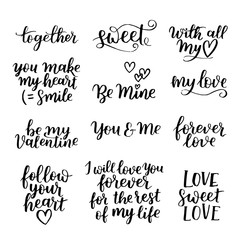 together
sweet
with all
my
you make
my heart
(= smile
Be Mine
my love
be my
Valentine
You & Me
forever
love
follow
your
heart
I will love you
forever
for the rest
of my life
LOVE
sweet
LOVE